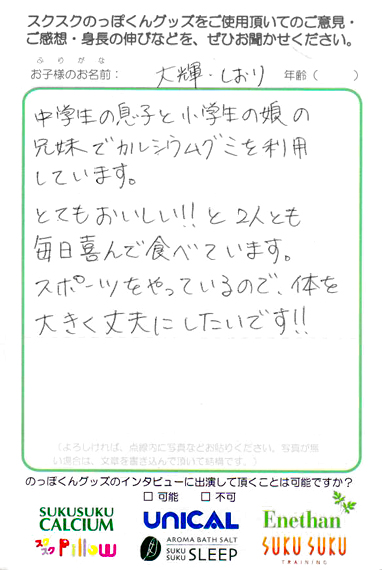 スクスクのっぽくんグッズをご使用頂いてのご意見・
ご感想・身長の伸びなどを、ぜひお聞かせください。
ふりがな
お子様のお名前： 大輝・しおり 年齢（ ）
中学生の息子と小学生の娘の
兄妹でカルシウムグミを利用
しています。
とてもおいしい!!と2人とも
毎日喜んで食べています。
スポーツをやっているので、体を
大きく丈夫にしたいです!!
（よろしければ、点線内に写真などお貼りください。写真が無
い場合は、文章を書き込んで頂いて結構です。）
のっぽくんグッズのインタビューに出演して頂くことは可能ですか？
□ 可能 □ 不可
SUKUSUKU CALCIUM
UNICAL
Enethan
スクスク Pillow
AROMA BATH SALT
SUKU SUKU SLEEP
SUKU SUKU
TRAINING